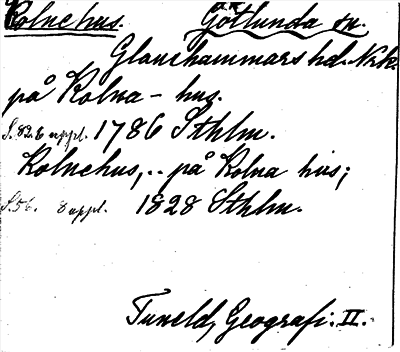 Kolnehus. Götlunda sn.
Glanshammars hd. Nrk.
på Kolna - hus.
S. 82. 6 uppl. 1786 Sthlm.
Kolnehus,.. på Kolna hus;
S. 56. 8 uppl. 1828 Sthlm.
Tuneld, Geografi. II.